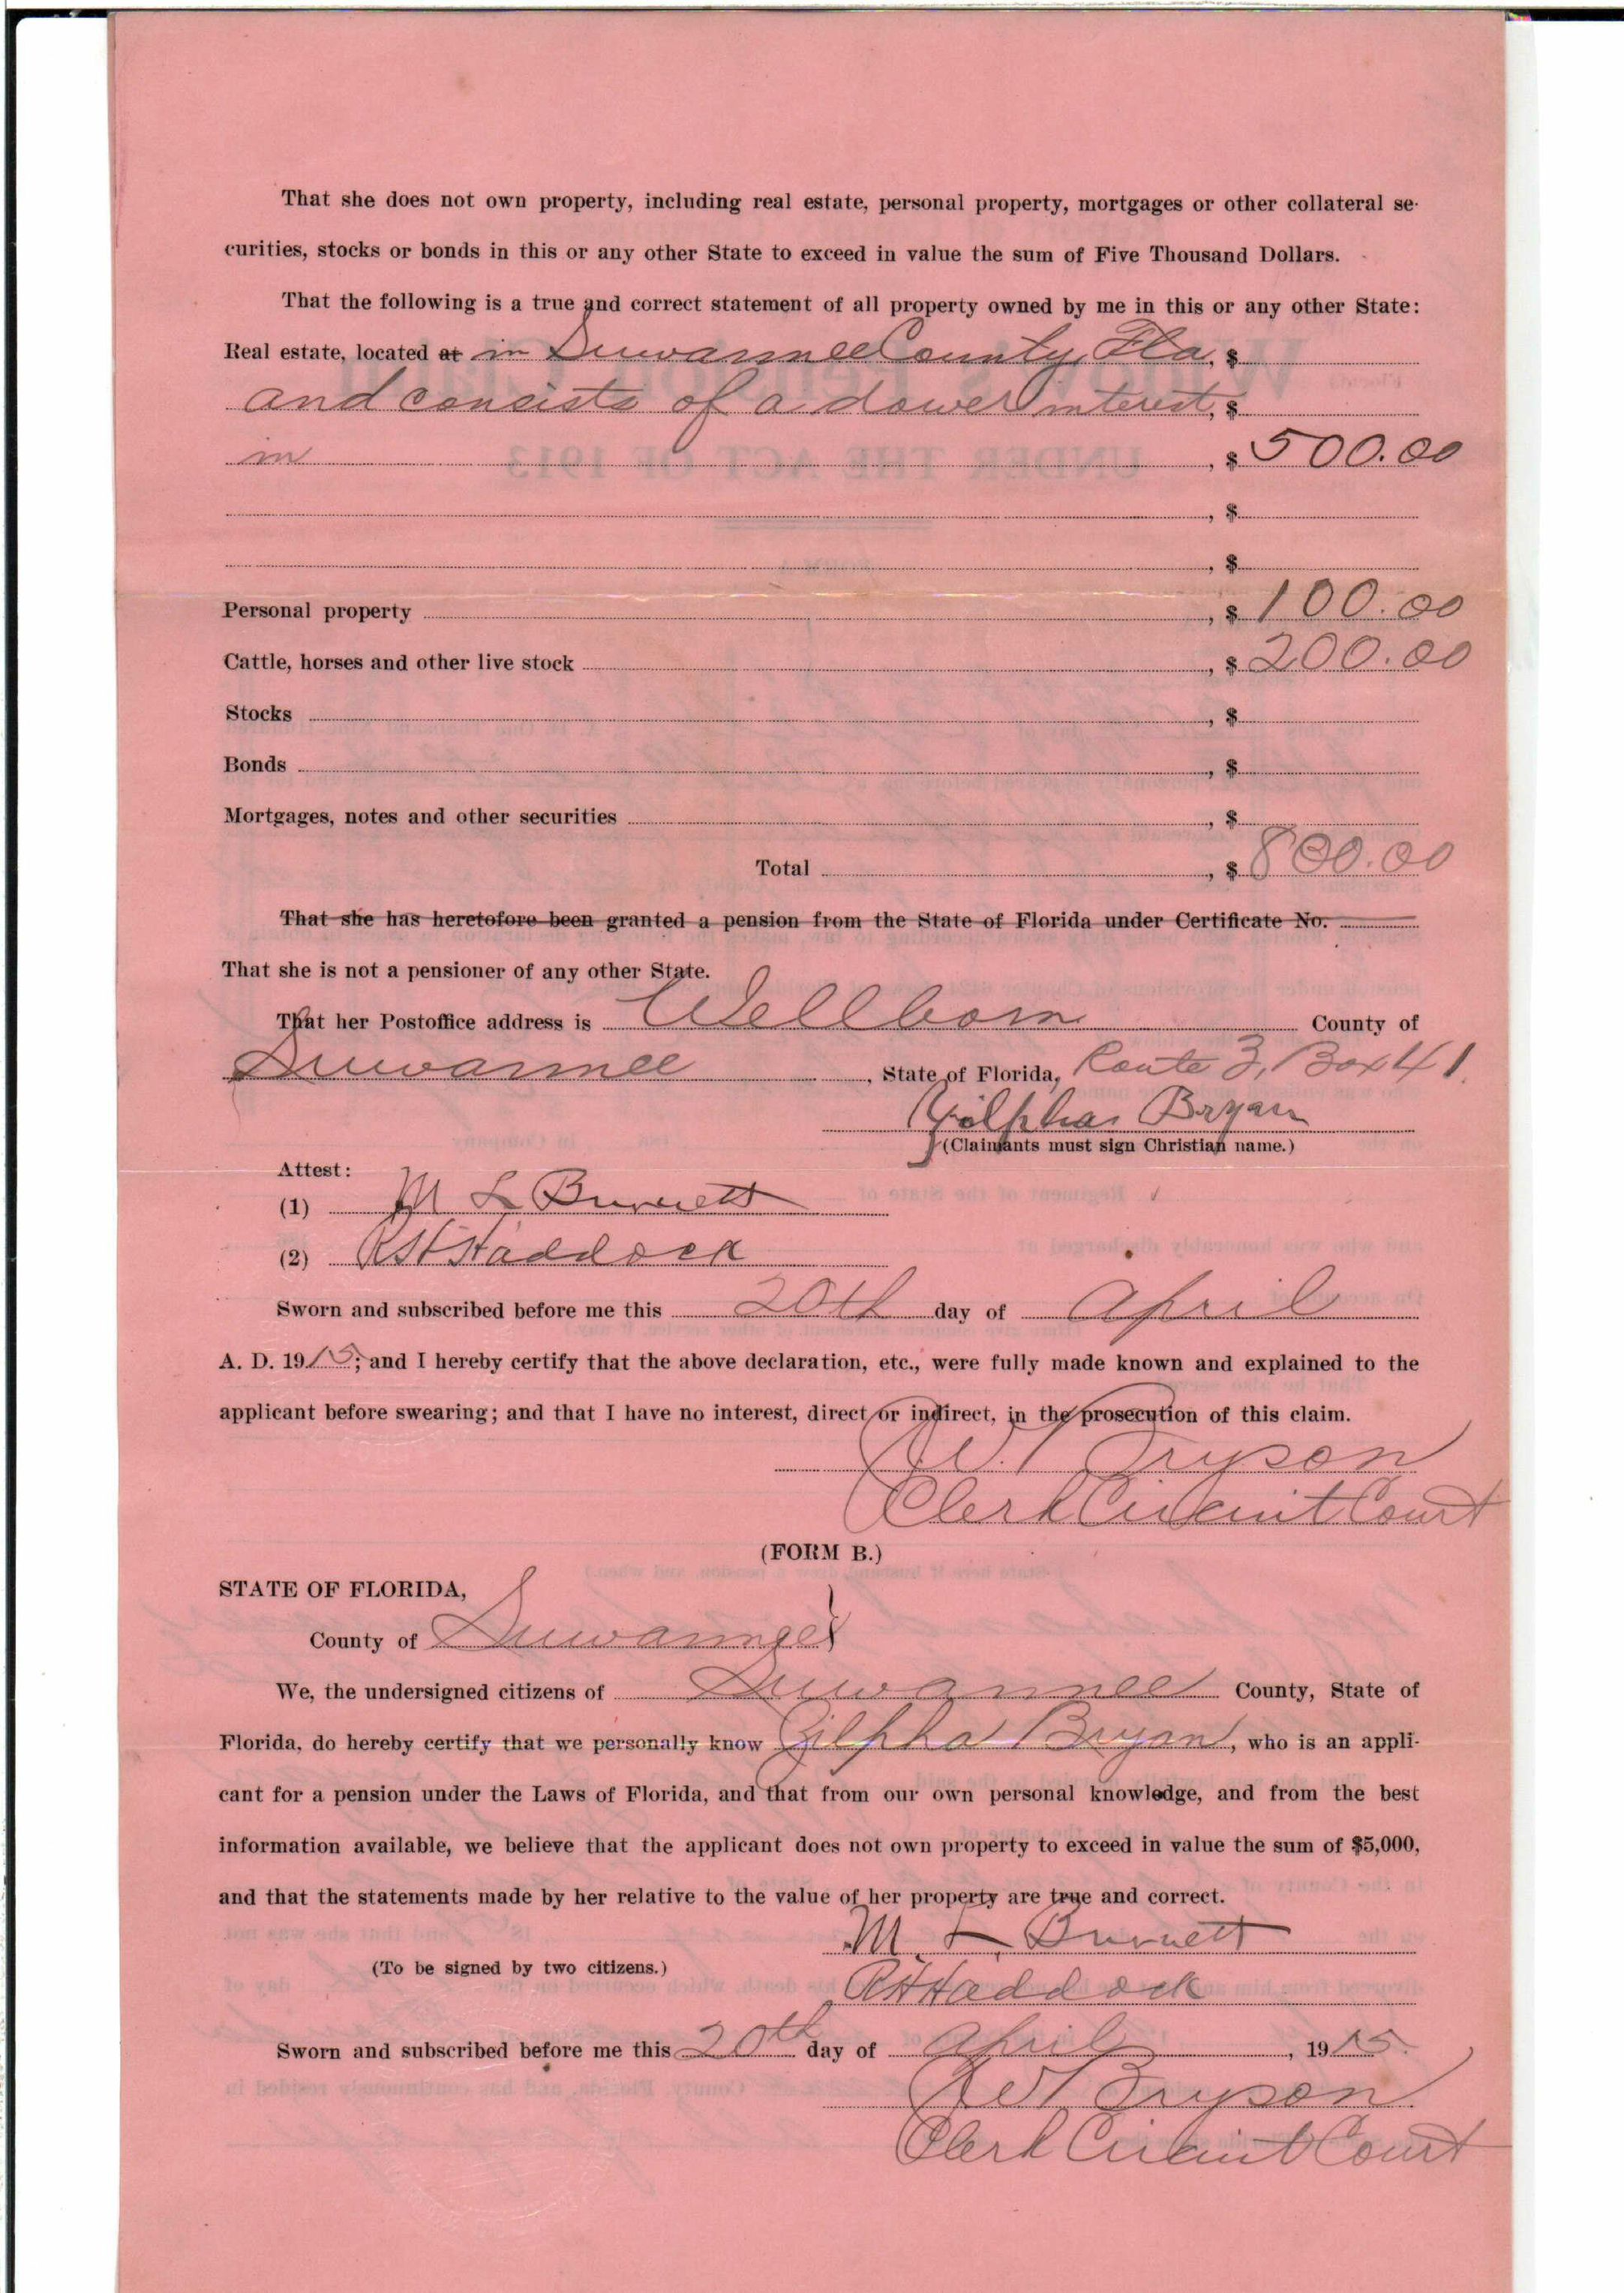 That she does not own property, including real estate, personal property, mortgages or other collateral se-
curities, stocks or bonds in this or any other State to exceed in value the sum of Five Thousand Dollars.
That the following is a true and correct statement of all property owned by me in this or any other State:
Real estate, located at in Suwannee County, Fla, $
and consists of a dower interest, $
in , $ 500.00
, $
, $
Personal property , $ 100.00
Cattle, horses and other live stock , $ 200.00
Stocks , $
Bonds , $
Mortgages, notes and other securities , $
Total , $ 800.00
That she has heretofore been granted a pension from the State of Florida under Certificate No.
That she is not a pensioner of any other State.
That her Postoffice address is Wellborn County of
Suwannee , State of Florida, Route 3, Box 41.
Zilphia Bryan
(Claimants must sign Christian name.)
Attest:
(1) M L Burnett
(2) R H Haddock
Sworn and subscribed before me this 20th day of April
A. D. 1915; and I hereby certify that the above declaration, etc., were fully made known and explained to the
applicant before swearing; and that I have no interest, direct or indirect, in the prosecution of this claim.
J W Bryson
Clerk Circuit Court
(FORM B.)
STATE OF FLORIDA,
County of Suwannee }
We, the undersigned citizens of Suwannee County, State of
Florida, do hereby certify that we personally know Zilpha Bryan, who is an appli-
cant for a pension under the Laws of Florida, and that from our own personal knowledge, and from the best
information available, we believe that the applicant does not own property to exceed in value the sum of $5,000,
and that the statements made by her relative to the value of her property are true and correct.
M. L. Burnett
(To be signed by two citizens.)
R H Haddock
Sworn and subscribed before me this 20th day of April , 1915.
J W Bryson
Clerk Circuit Court